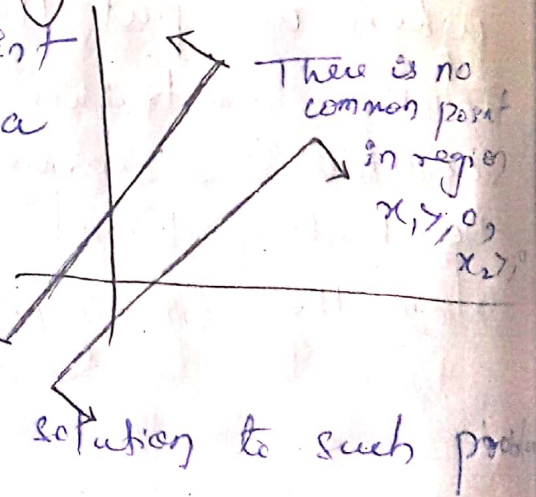 There is no
common point
in region
a
x₁ ≥ 0,
x₂ ≥ 0
solution to such